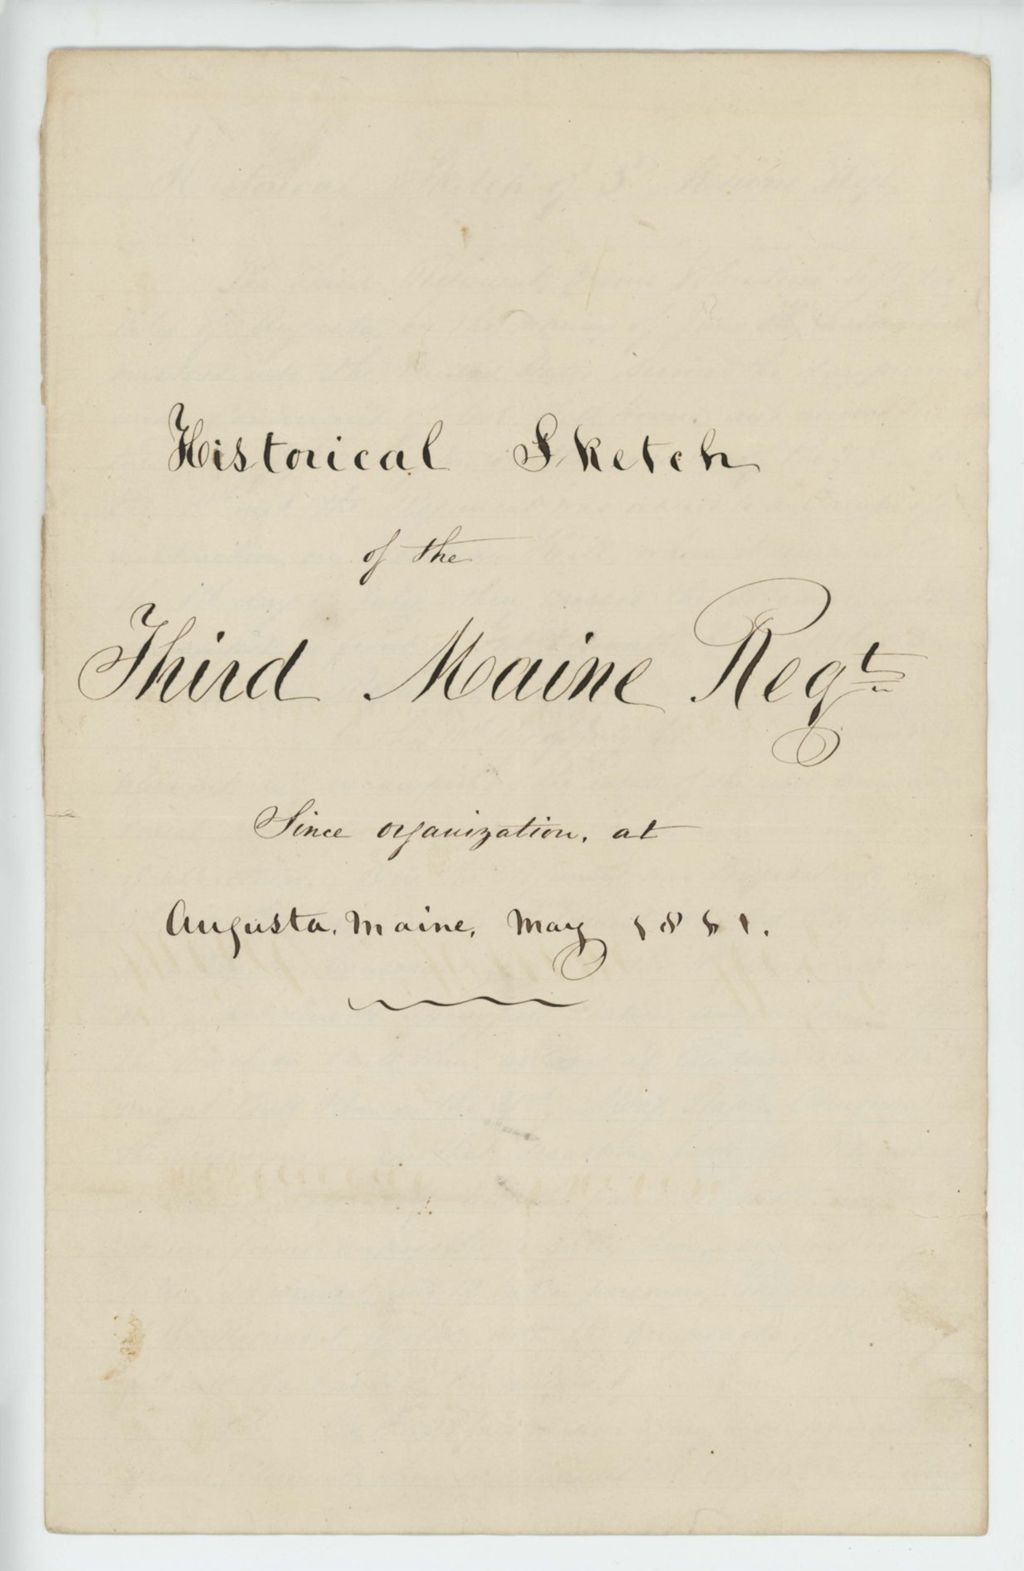 Historical Sketch
of the
Third Maine Regt
Since organization, at
Augusta, Maine, May 1861.